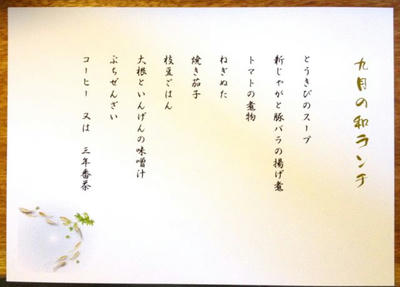 九月の和ランチ
とうきびのスープ
新じゃがと豚バラの揚げ煮
トマトの煮物
ねぎぬた
焼き茄子
枝豆ごはん
大根といんげんの味噌汁
ぷちぜんざい
コーヒー 又は 三年番茶